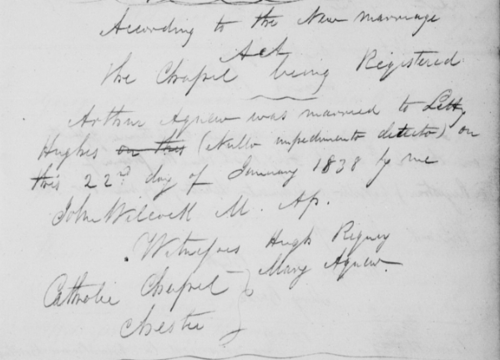 According to the New marriage
Act
the Chapel being Registered
Arthur Agnew was married to Letty
Hughes on this (Nullo impedimento detecto) on
this 22d day of January 1838 by me
John Wilcock M. Ap.
Witnesses Hugh Rigney
Mary Agnew.
Catholic Chapel
Chester